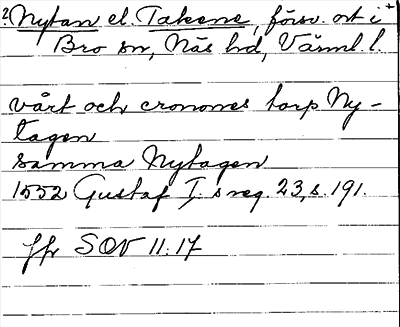 ?Nytan el. Takene, försv. ort i +
Bro sn, Näs hd, Värml. l.
vårt och cronones torp Ny-
tagen
samma Nytagen
1552 Gustaf I:s reg. 23, s. 191.
Jfr SOV 11:17